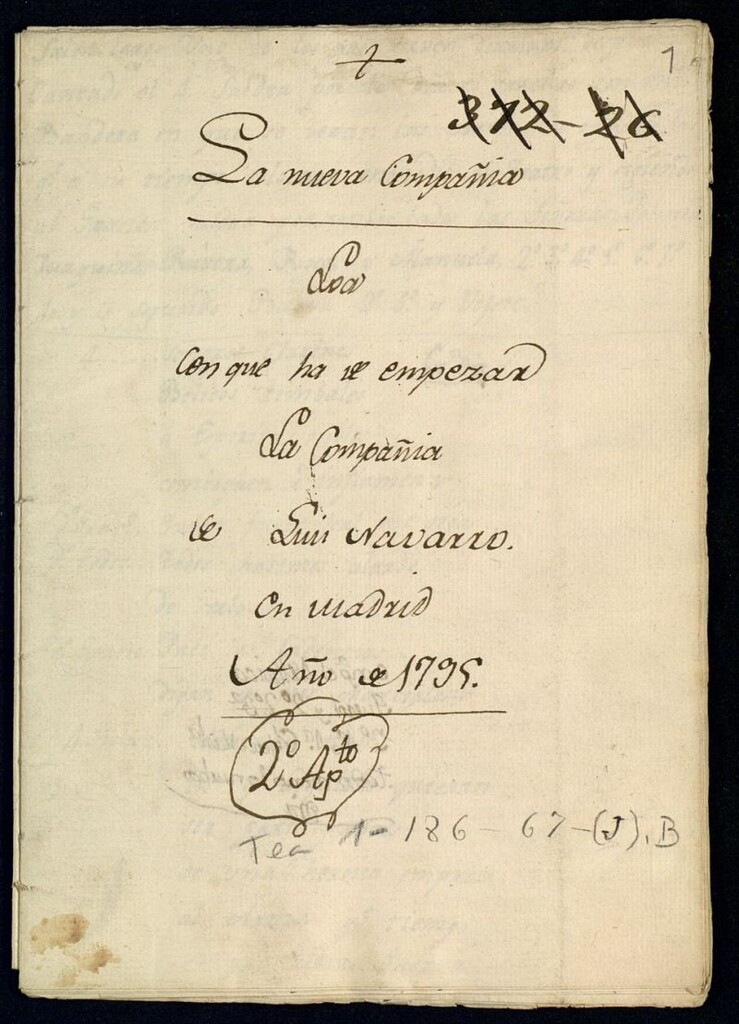 1
La nueva Compañia
Loa
Con que ha de empezar
La Compañia
de Luis Navarro.
en Madrid
Año de 1795.
2º Apto
Tea 1-186-67-(J), B